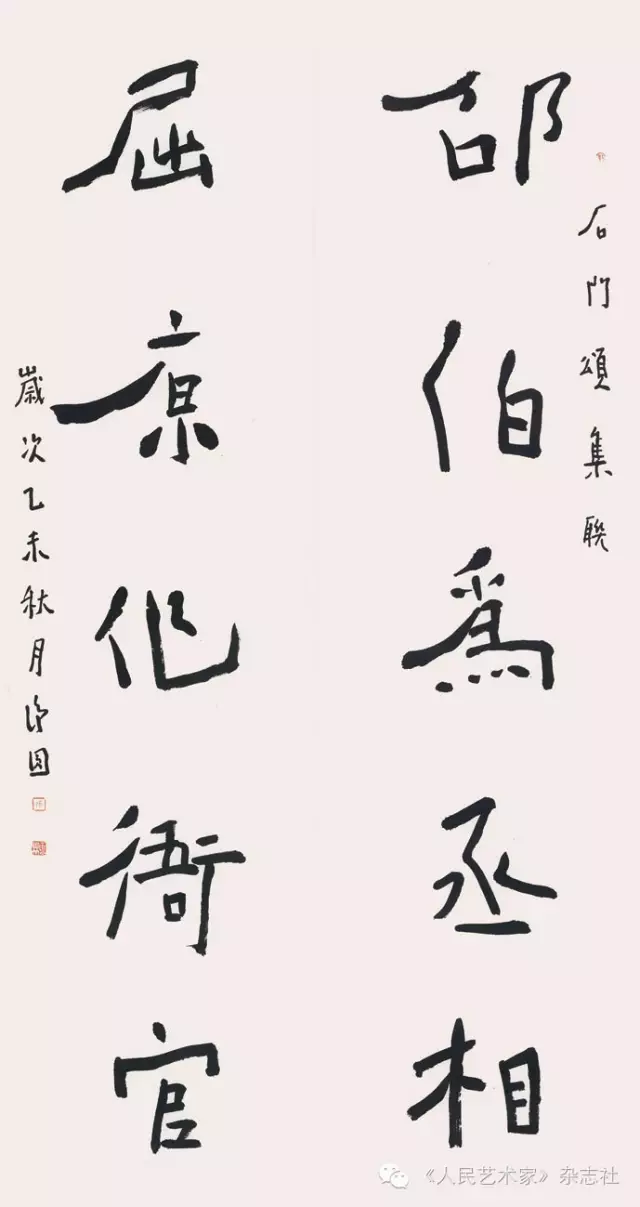 石門頌集聯
邵伯爲丞相
屈原作衙官
歲次乙未秋月
《人民艺术家》杂志社